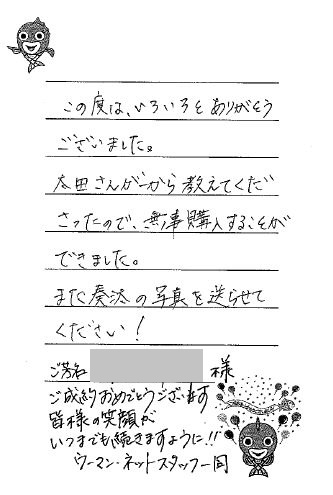 この度は、いろいろとありがとう
ございました。
太田さんが一から教えてくだ
さったので、無事購入することが
できました。
また奏汰の写真を送らせて
ください!
ご芳名 様
ご成約おめでとうございます
皆様の笑顔が
いつまでも続きますように!!
ウーマン・ネットスタッフ一同